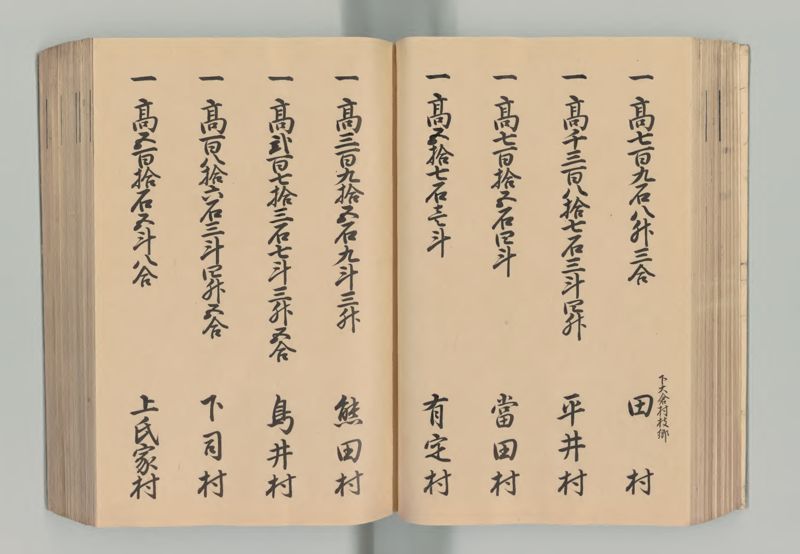 一 高七百九石八升三合
下大倉村枝郷
田村
一 高千三百八拾七石三斗四升
平井村
一 高七百拾五石四斗
當田村
一 高五拾七石壱斗
有定村
一 高三百九拾五石九斗三升
熊田村
一 高弐百七拾三石七斗三升五合
鳥井村
一 高百八拾六石三斗四升五合
下司村
一 高五百拾石五斗八合
上氏家村